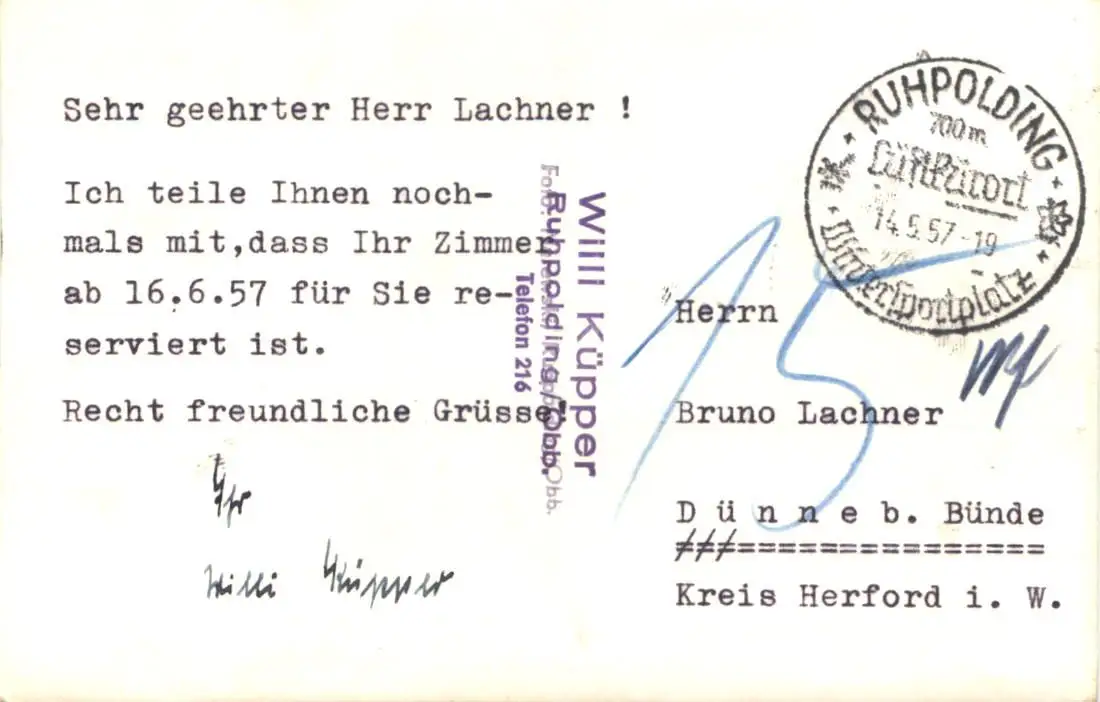 Sehr geehrter Herr Lachner !
Ich teile Ihnen noch-
mals mit,dass Ihr Zimmer
ab 16.6.57 für Sie re-
serviert ist.
Recht freundliche Grüsse!
Ihr
Willi Küpper
Willi Küpper
Ruhpolding/Obb.
Telefon 216
Foto:
Obb.
RUHPOLDING
700 m
Luftkurort
14.5.57-19
Wintersportplatz
15
Herrn
Bruno Lachner
D ü n n e b. Bünde
///===============
Kreis Herford i. W.